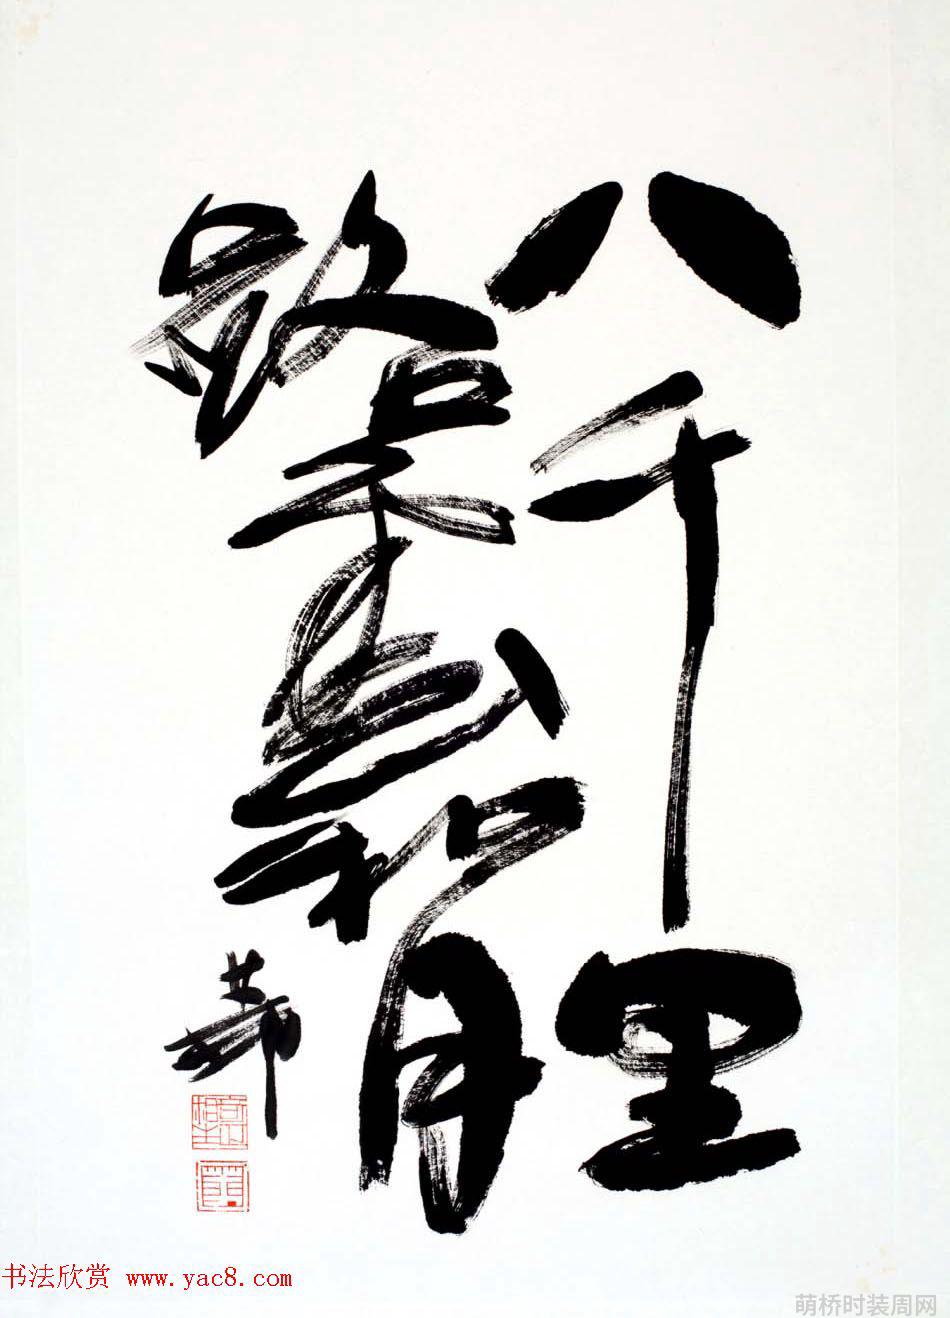 八千里
路云和月
书法欣赏 www.yac8.com
萌桥时装周网